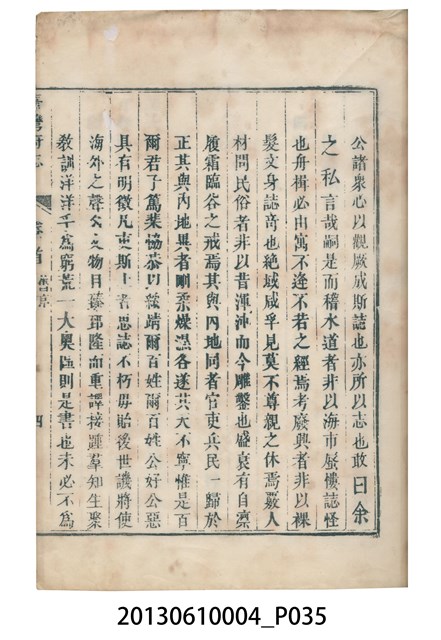 公諸衆心以觀厥成斯誌也亦所以志也敢曰余
之私言哉嗣是而稽水道者非以海市蜃樓誌怪
也舟楫必由寓不逢不若之經焉考廢興者非以裸
髮文身誌奇也絶域咸孚見莫不尊親之休焉覈人
材問民俗者非以昔渾沌而今雕鑿也盛衰有自凛
履霜臨谷之戒焉其與內地同者官吏兵民一歸於
正其與內地異者剛柔燥濕各遂其天不寧惟是百
爾君子篤棐協恭以綏靖爾百姓爾百姓公好公惡
具有明徵凡吏斯土者思誌不朽毋貽後世譏將使
海外之聲名文物日臻郅隆而重譯接踵羣知生聚
教訓洋洋乎為窮荒一大奧區則是書也未必不為
臺灣府志
卷首
舊序
四
20130610004_P035